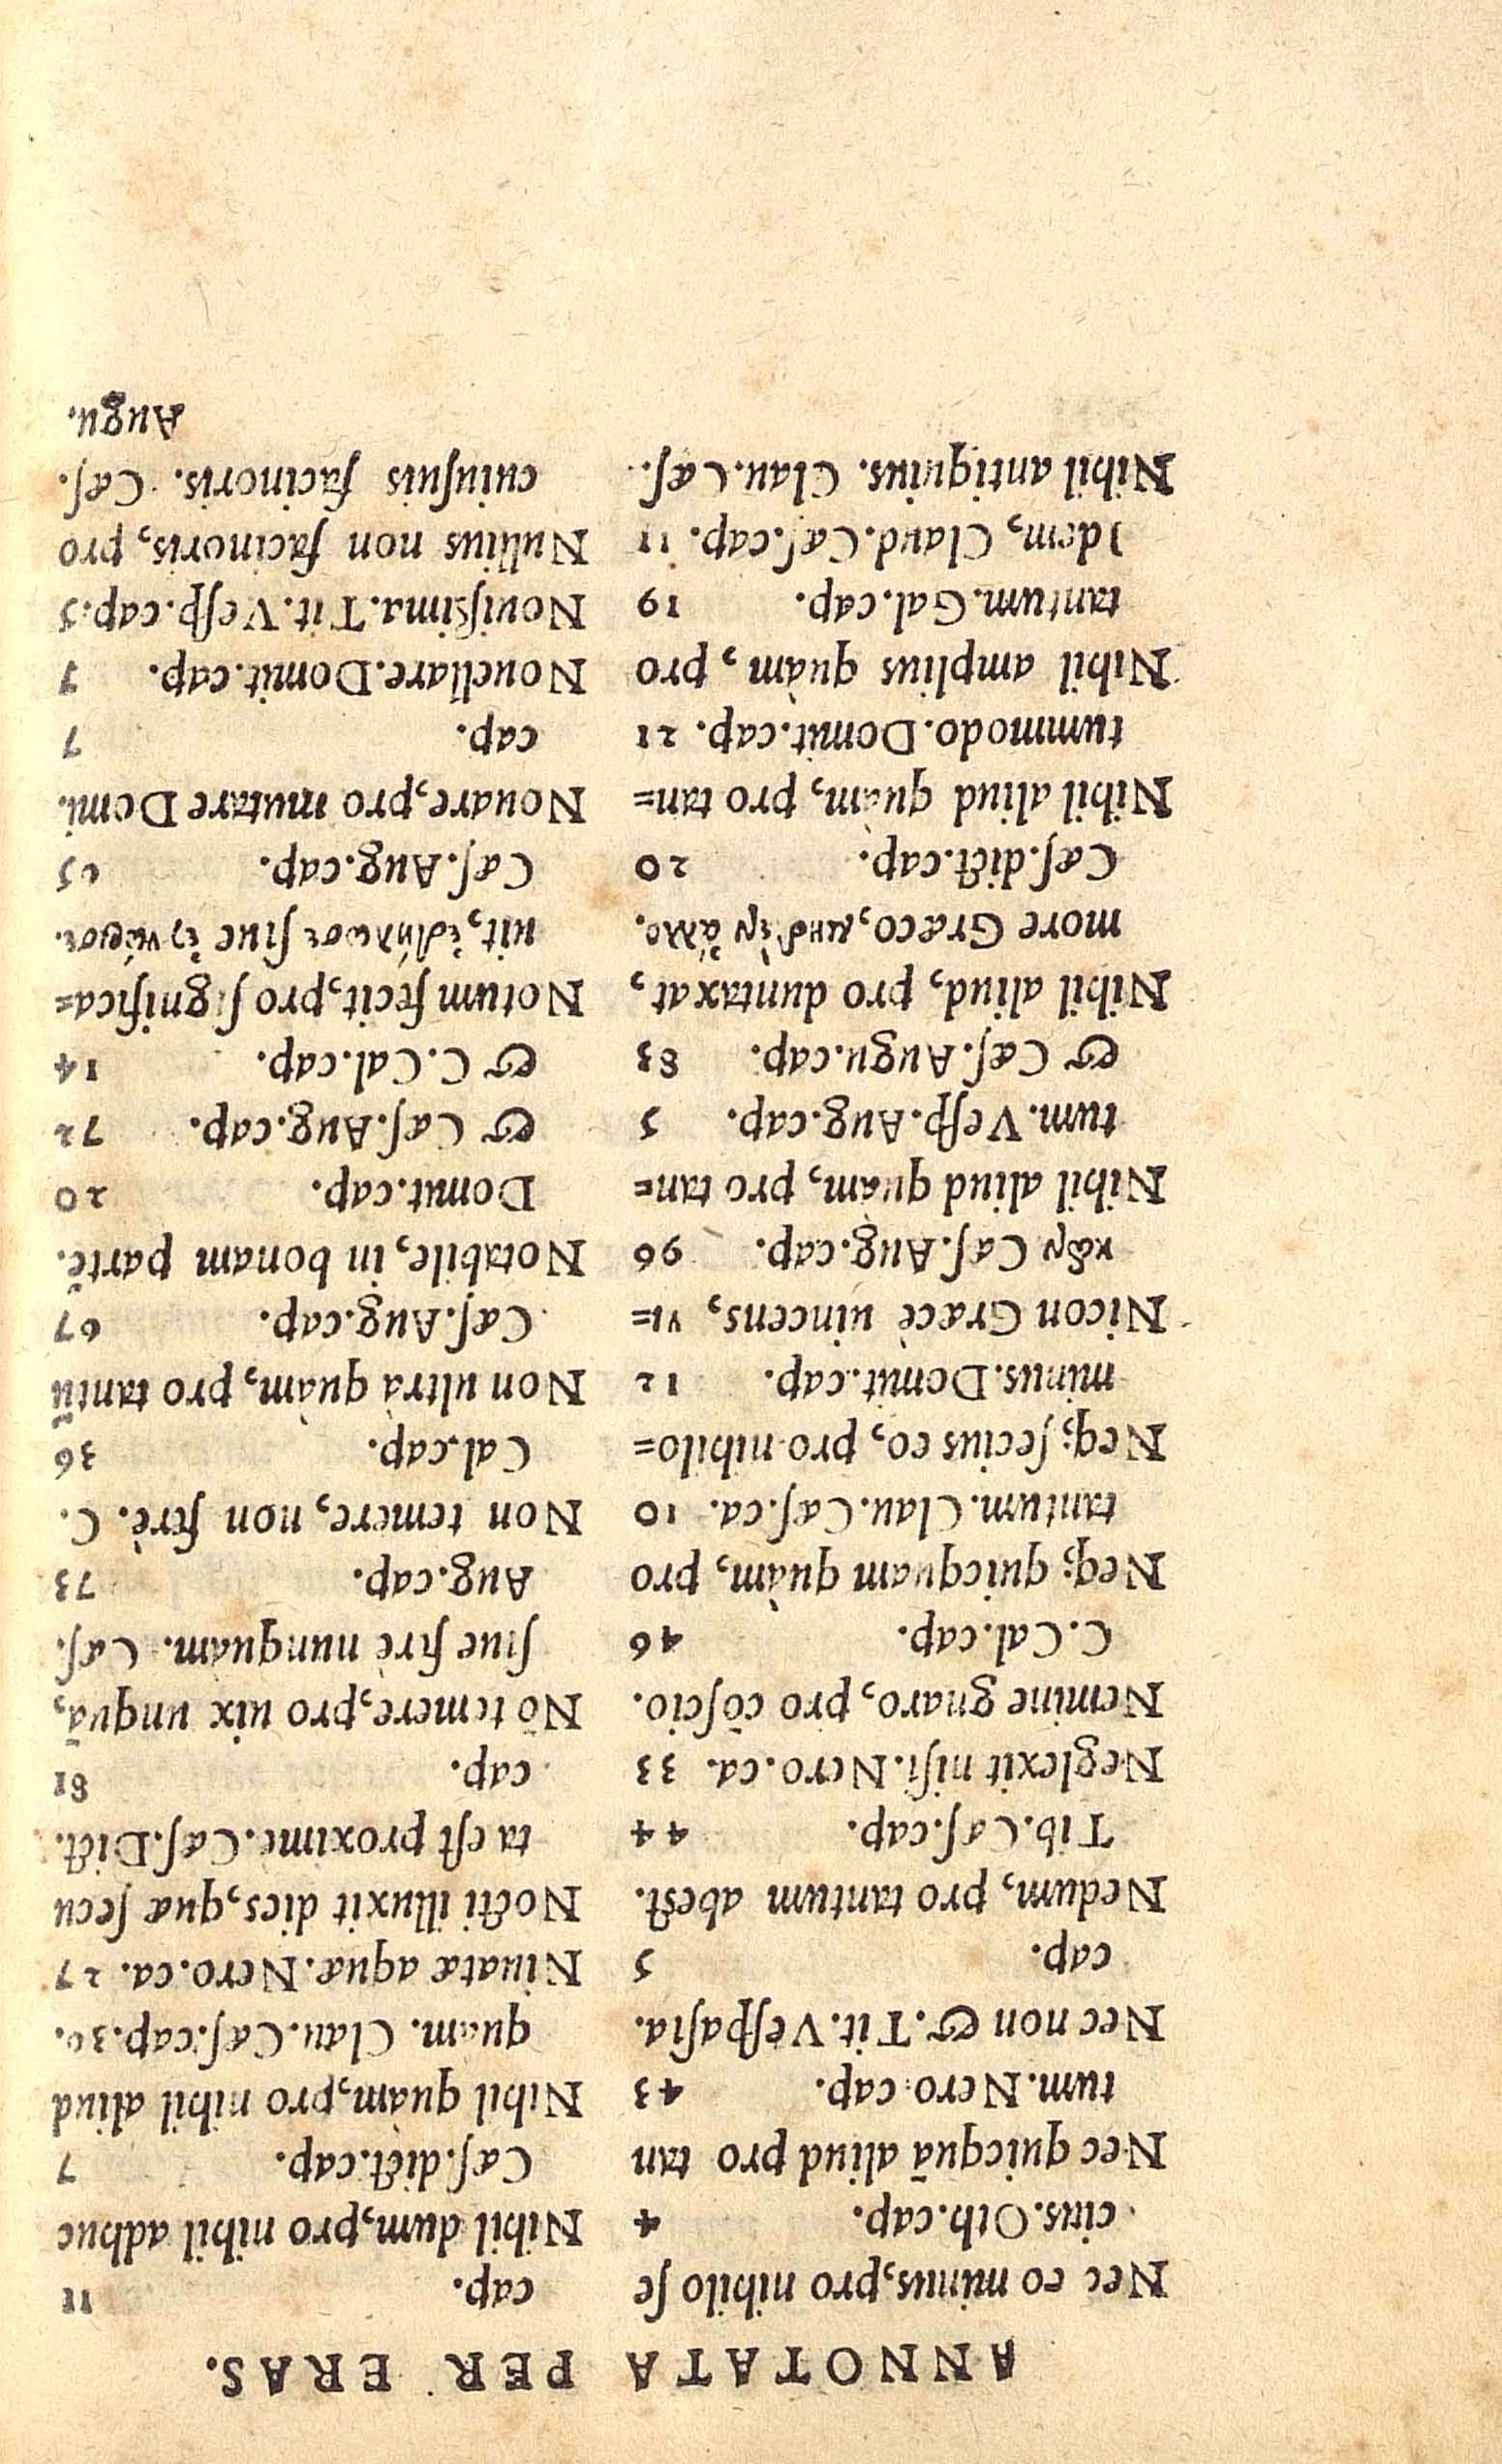 ANNOTATA PER ERAS.
Nec eo minus, pro nihilo ſe
cius. Oth. cap. 4
Nec quicquā aliud pro tan
tum. Nero. cap. 43
Nec non &. Tit. Veſpaſia.
cap. 5
Nedum, pro tantum abeſt.
Tib. Cæſ. cap. 44
Neglexit niſi. Nero. ca. 33
Nemine gnaro, pro cōſcio.
C. Cal. cap. 46
Neq; quicquam quàm, pro
tantum. Clau. Cæſ. ca. 10
Neq; ſecius eo, pro nihilo=
minus. Domit. cap. 12
Nicon Græcè uincens, νι=
κῶν Cæſ. Aug. cap. 96
Nihil aliud quàm, pro tan=
tum. Veſp. Aug. cap. 5
& Cæſ. Augu. cap. 83
Nihil aliud, pro duntaxat,
more Græco, μηδὲν ἄλλο.
Cæſ. dict. cap. 20
Nihil aliud quàm, pro tan=
tummodo. Domit. cap. 21
Nihil amplius quàm, pro
tantum. Gal. cap. 19
Idem, Claud. Cæſ. cap. 11
Nihil antiquius. Clau. Cæſ.
cap. 11
Nihil dum, pro nihil adhuc
Cæſ. dict. cap. 7
Nihil quàm, pro nihil aliud
quàm. Clau. Cæſ. cap.
Niuatæ aquæ. Nero. ca. 27
Nocti illuxit dies, quæ ſecu
ta eſt proximè. Cæſ. Dict.
cap. 81
Nō temere, pro uix unquā,
ſiue ferè nunquam. Cæſ.
Aug. cap. 73
Non temere, non ferè. C.
Cal. cap. 36
Non ultrà quàm, pro tantū
Cæſ. Aug. cap. 67
Notabile, in bonam partē.
Domit. cap. 20
& Cæſ. Aug. cap. 72
& C. Cal. cap. 14
Notum fecit, pro ſignifica=
uit, ἐδήλωσε ſiue
Cæſ. Aug. cap. 65
Nouare, pro mutare Domi.
cap. 7
Nouellare. Domit. cap. 7
Nouiſsima. Tit. Veſp. cap. 5
Nullius non facinoris, pro
cuiuſuis facinoris. Cæſ.
Augu.